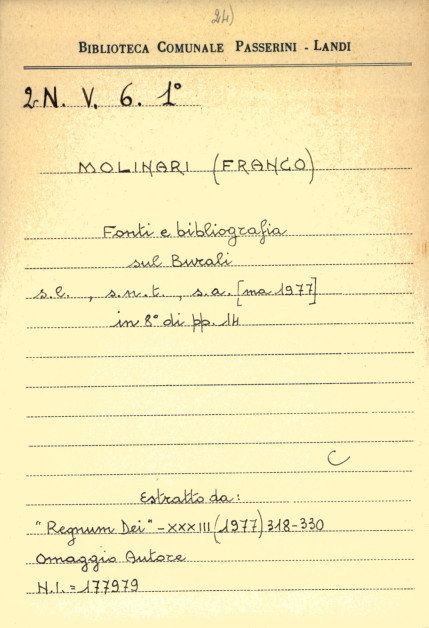 24)
BIBLIOTECA COMUNALE PASSERINI - LANDI
2N. V. 6. 1°
MOLINARI (FRANCO)
Fonti e bibliografia
sul Burali
s.l., s.n.t., s.a. [ma 1977]
in 8° di pp. 14
C
Estratto da:
"Regnum Dei" - XXXIII (1977) 318-330
Omaggio Autore
N.I. = 177979